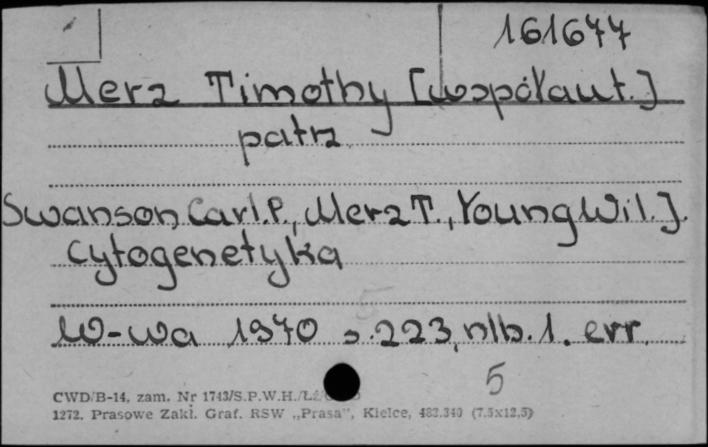 161677
Merz Timothy [współaut.]
patrz
Swanson Carl.P., Merz T., Young Wil. J.
Cytogenetyka
W-wa 1970 s. 223, nlb. 1. err.
5
CWD/B-14, zam. Nr 1743/S.P.W.H./
1272. Prasowe Zakł. Graf. RSW „Prasa”, Kielce, 483.340 (7.5x12,5)